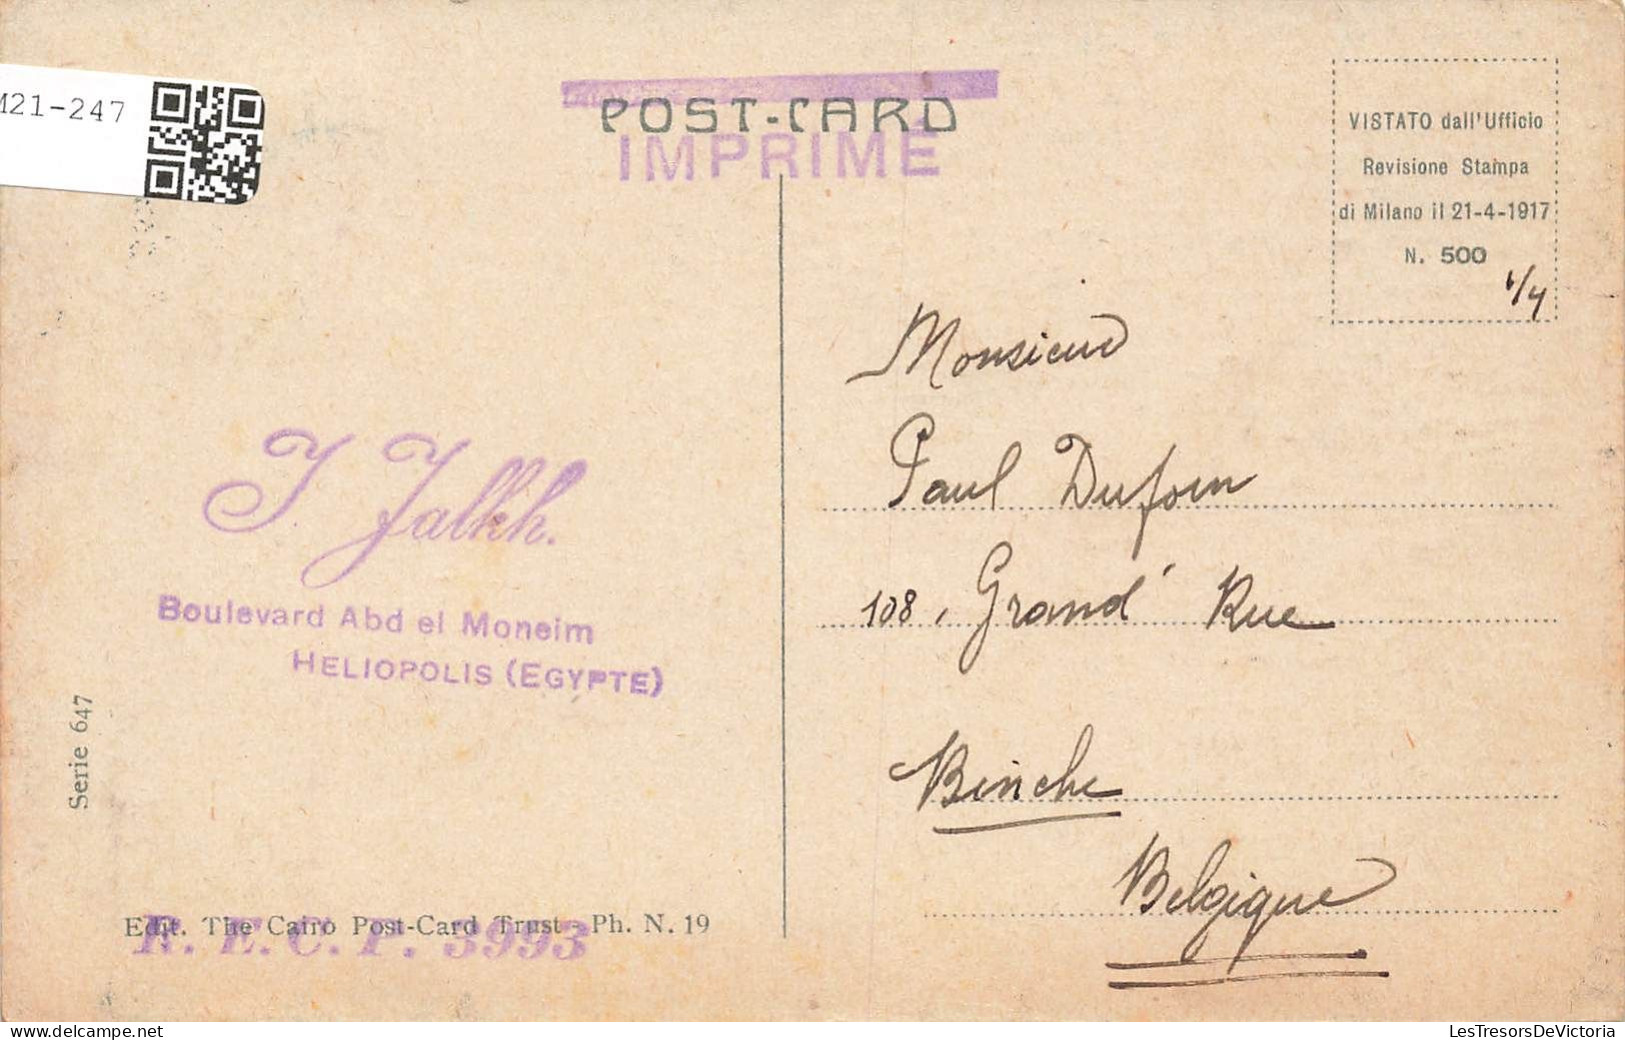 M21-247
POST-CARD
IMPRIMÉ
VISTATO dall'Ufficio
Revisione Stampa
di Milano il 21-4-1917
N. 500
1/4
Monsieur
Paul Dufour
108, Grand' Rue
Binche
Belgique
J Jalkh.
Boulevard Abd el Moneim
HELIOPOLIS (EGYPTE)
Serie 647
Edit. The Cairo Post-Card Trust - Ph. N. 19
R. E. C. P. 3993
LesTresorsDeVictoria